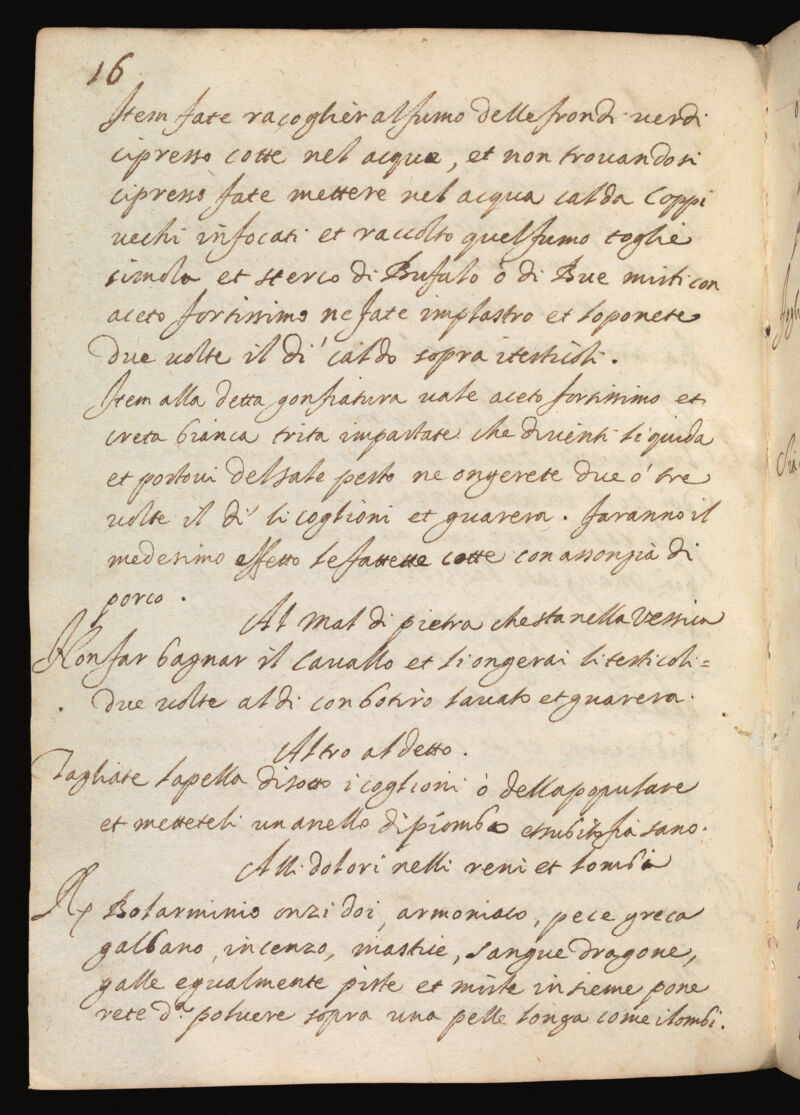 16
Item fate racoglièr al fumo delle frondi verdi
cipresso cotte nel acqua, et non trouandosi
cipresso fate mettere nel acqua calda Coppi
uechi infocati et raccolto quel fumo toglie
simola et sterco di Bufalo ò di Bue misti con
aceto fortissimo ne fate implastro et loponete
due uolte il dì caldo sopra itesticoli.
Item alla detta gonfiatura uale aceto fortissimo et
creta bianca trita impastate che diuenti liquida
et postoui del sale pesto ne ongerete due ò tre
uolte il dì li coglioni et guarera. faranno il
medesimo effetto le fattette cotte con assongia di
porco.
Al mal di pietra che sta nella Vessica
Non far bagnar il Cauallo et li ongerai li testicoli=
due uolte al di con botiro lauato et guarera.
Altro al detto.
Tagliate la pella disotto i coglioni ò della populare
et metteteli un anello di piombo et subito fia sano.
Alli dolori nelli reni et lombi
Rx Bolarminio onzi doi, armoniaco, pece greca
galbano, incenzo, mastice, sangue dragone,
galle egualmente piste et miste insieme pone
rete d.ª poluere sopra una pelle longa come i lombi.